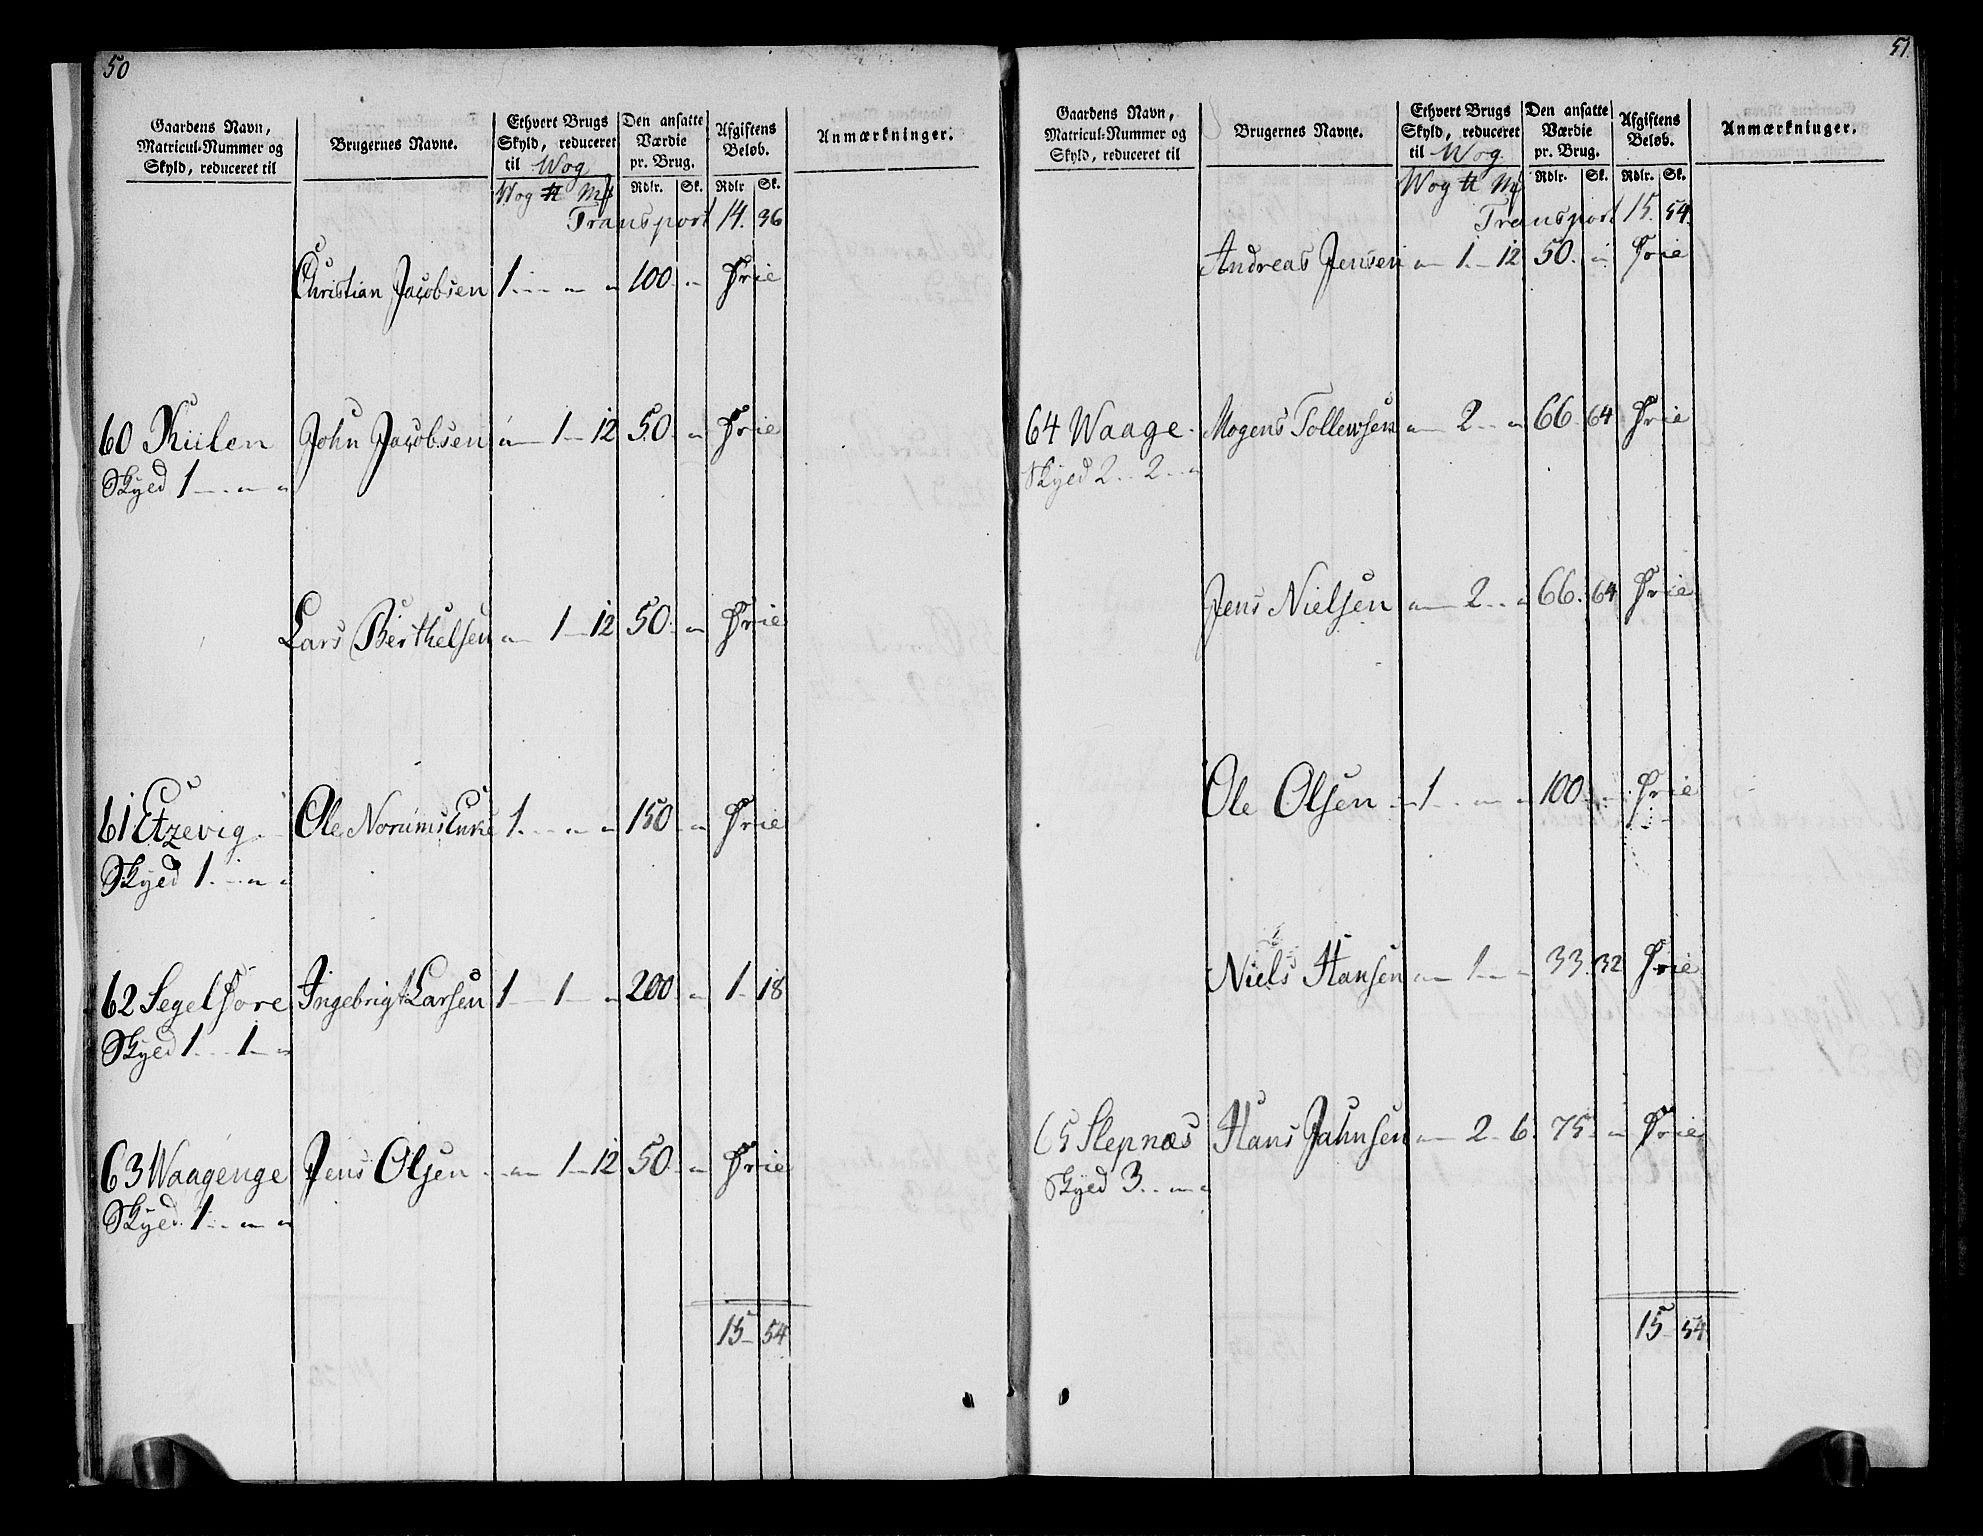 50
Gaardens Navn, Matricul-Nummer og Skyld, reduceret til | Brugernes Navne. | Ethvert Brugs Skyld, reduceret til Wog | Den ansatte Værdie pr. Brug. | Afgiftens Beløb. | Anmærkninger.
Wog ℔ Mk | Rdlr. | Sk. | Rdlr | Sk.
Transport 14. 36
Christian Jacobsen 1 - - - 100 - Frie
60 Kiilen John Jacobsen - 1 - 12 50 - Frie
Skyld 1 - - -
Lars Berthelsen - 1 - 12 50 - Frie
61 Etzevig Ole Norums Enke 1 - - - 150 - Frie
Skyld 1 - - -
62 Segelfore Ingebrigt Larsen 1 - 1 - 200 - 1 - 18
Skyld 1 - 1 -
63 Waagenge Jens Olsen - 1 - 12 50 - Frie
Skyld 1 - - -
15 - 54
51.
Gaardens Navn, Matricul-Nummer og Skyld, reduceret til | Brugernes Navne. | Ethvert Brugs Skyld, reduceret til Wog. | Den ansatte Værdie pr. Brug. | Afgiftens Beløb. | Anmærkninger.
Wog ℔ Mk | Rdlr. | Sk. | Rdlr. | Sk.
Transport 15. 54.
Andreas Jensen - 1 - 12 50. - Frie
64 Waage. Mogens Tollewsen - 2 - - 66 64 Frie
Skyld 2 - 2 - -
Jens Nielsen - 2 - - 66. 64 Frie
Ole Olsen - 1 - - - 100 - Frie
Niels Hansen - 1 - - 33. 32 Frie
65 Slepnæs Hans Jahnsen - 2 - 6. 75. - Frie
Skyld 3 - - -
15 - 54